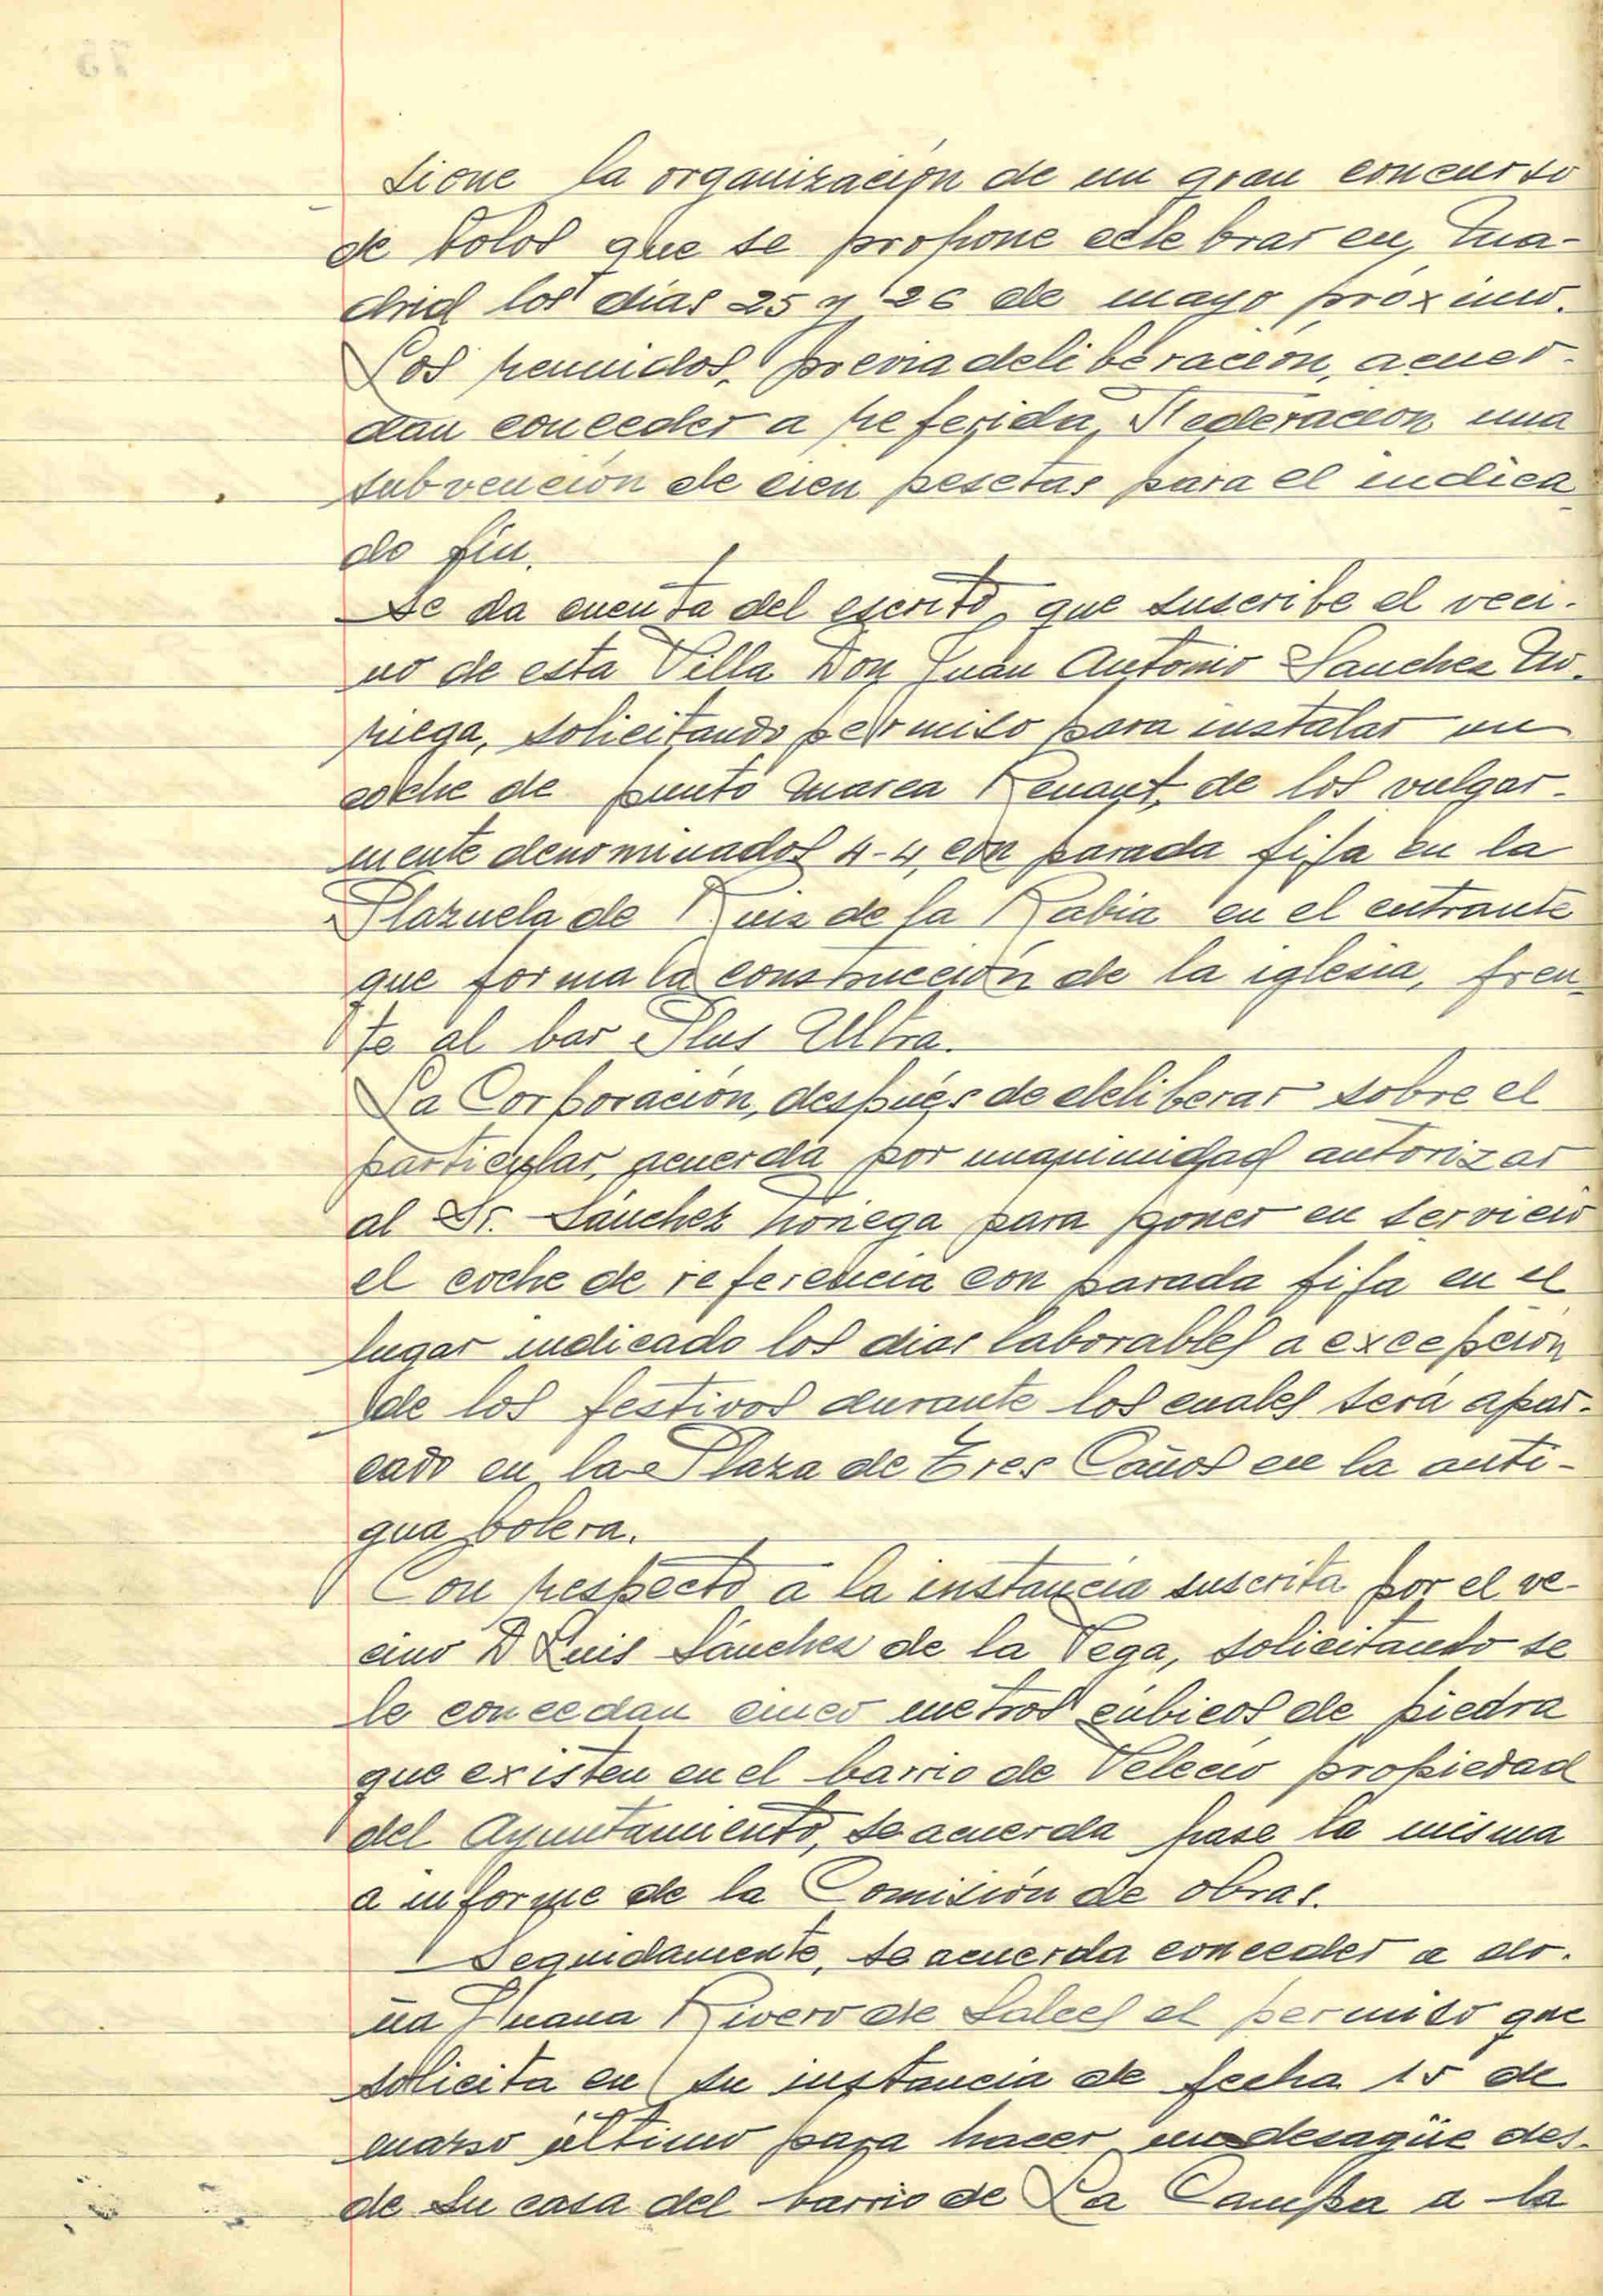 sione la organización de un gran concurso
de bolos que se propone celebrar en Ma-
drid los días 25 y 26 de mayo próximo.
Los reunidos, previa deliberación, acuer-
dan conceder a referida Federación una
subvención de cien pesetas para el indica-
do fin.
Se da cuenta del escrito que suscribe el veci-
no de esta Villa Don Juan Antonio Sanchez No-
riega, solicitando permiso para instalar un
coche de punto marca Renaut, de los vulgar-
mente denominados 4-4, con parada fija en la
Plazuela de Ruiz de la Rabia en el entrante
que forma la construcción de la iglesia, fren-
te al bar Plus Ultra.
La Corporación, después de deliberar sobre el
particular, acuerda por unanimidad autorizar
al Sr. Sánchez Noriega para poner en servicio
el coche de referencia con parada fija en el
lugar indicado los dias laborables a excepción
de los festivos durante los cuales será apar-
cado en la Plaza de Tres Caños en la anti-
gua bolera.
Con respecto a la instancia suscrita por el ve-
cino D Luis Sánchez de la Vega, solicitando se
le concedan cinco metros cúbicos de piedra
que existen en el barrio de Velecio propiedad
del Ayuntamiento, se acuerda pase la misma
a informe de la Comisión de obras.
Seguidamente, se acuerda conceder a do-
ña Juana Rivero de Salces el permiso que
solicita en su instancia de fecha 15 de
marzo último para hacer un desagüe des-
de su casa del barrio de La Campa a la